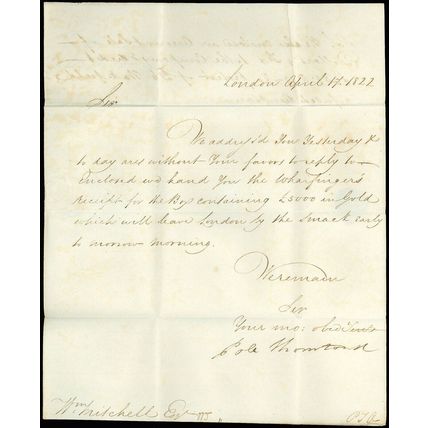 London April 17. 1822
Sir
We address'd You Yesterday &
to day are without Your favors to reply to —
Enclosed we hand You the Wharfingers
Receipt for the Box containing £5000 in Gold
which will leave London by the Smack early
to morrow morning.
We remain
Sir
Your mo: obed Servts
Pole Thornton &
Wm Mitchell Esqr
P.T.O.